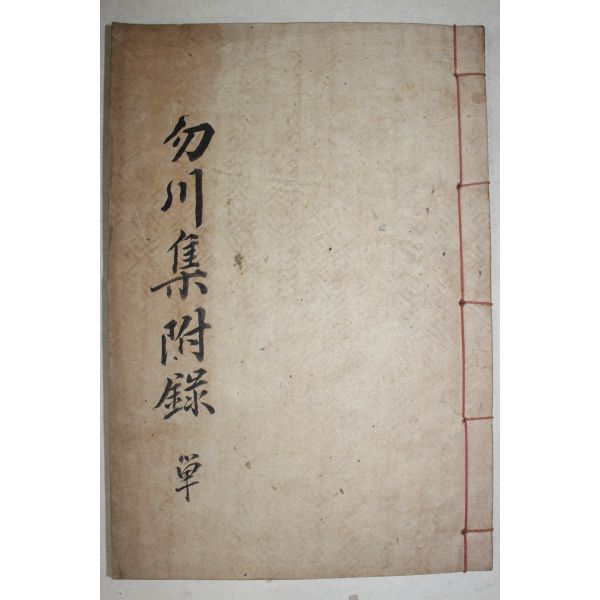 勿川集附錄 單